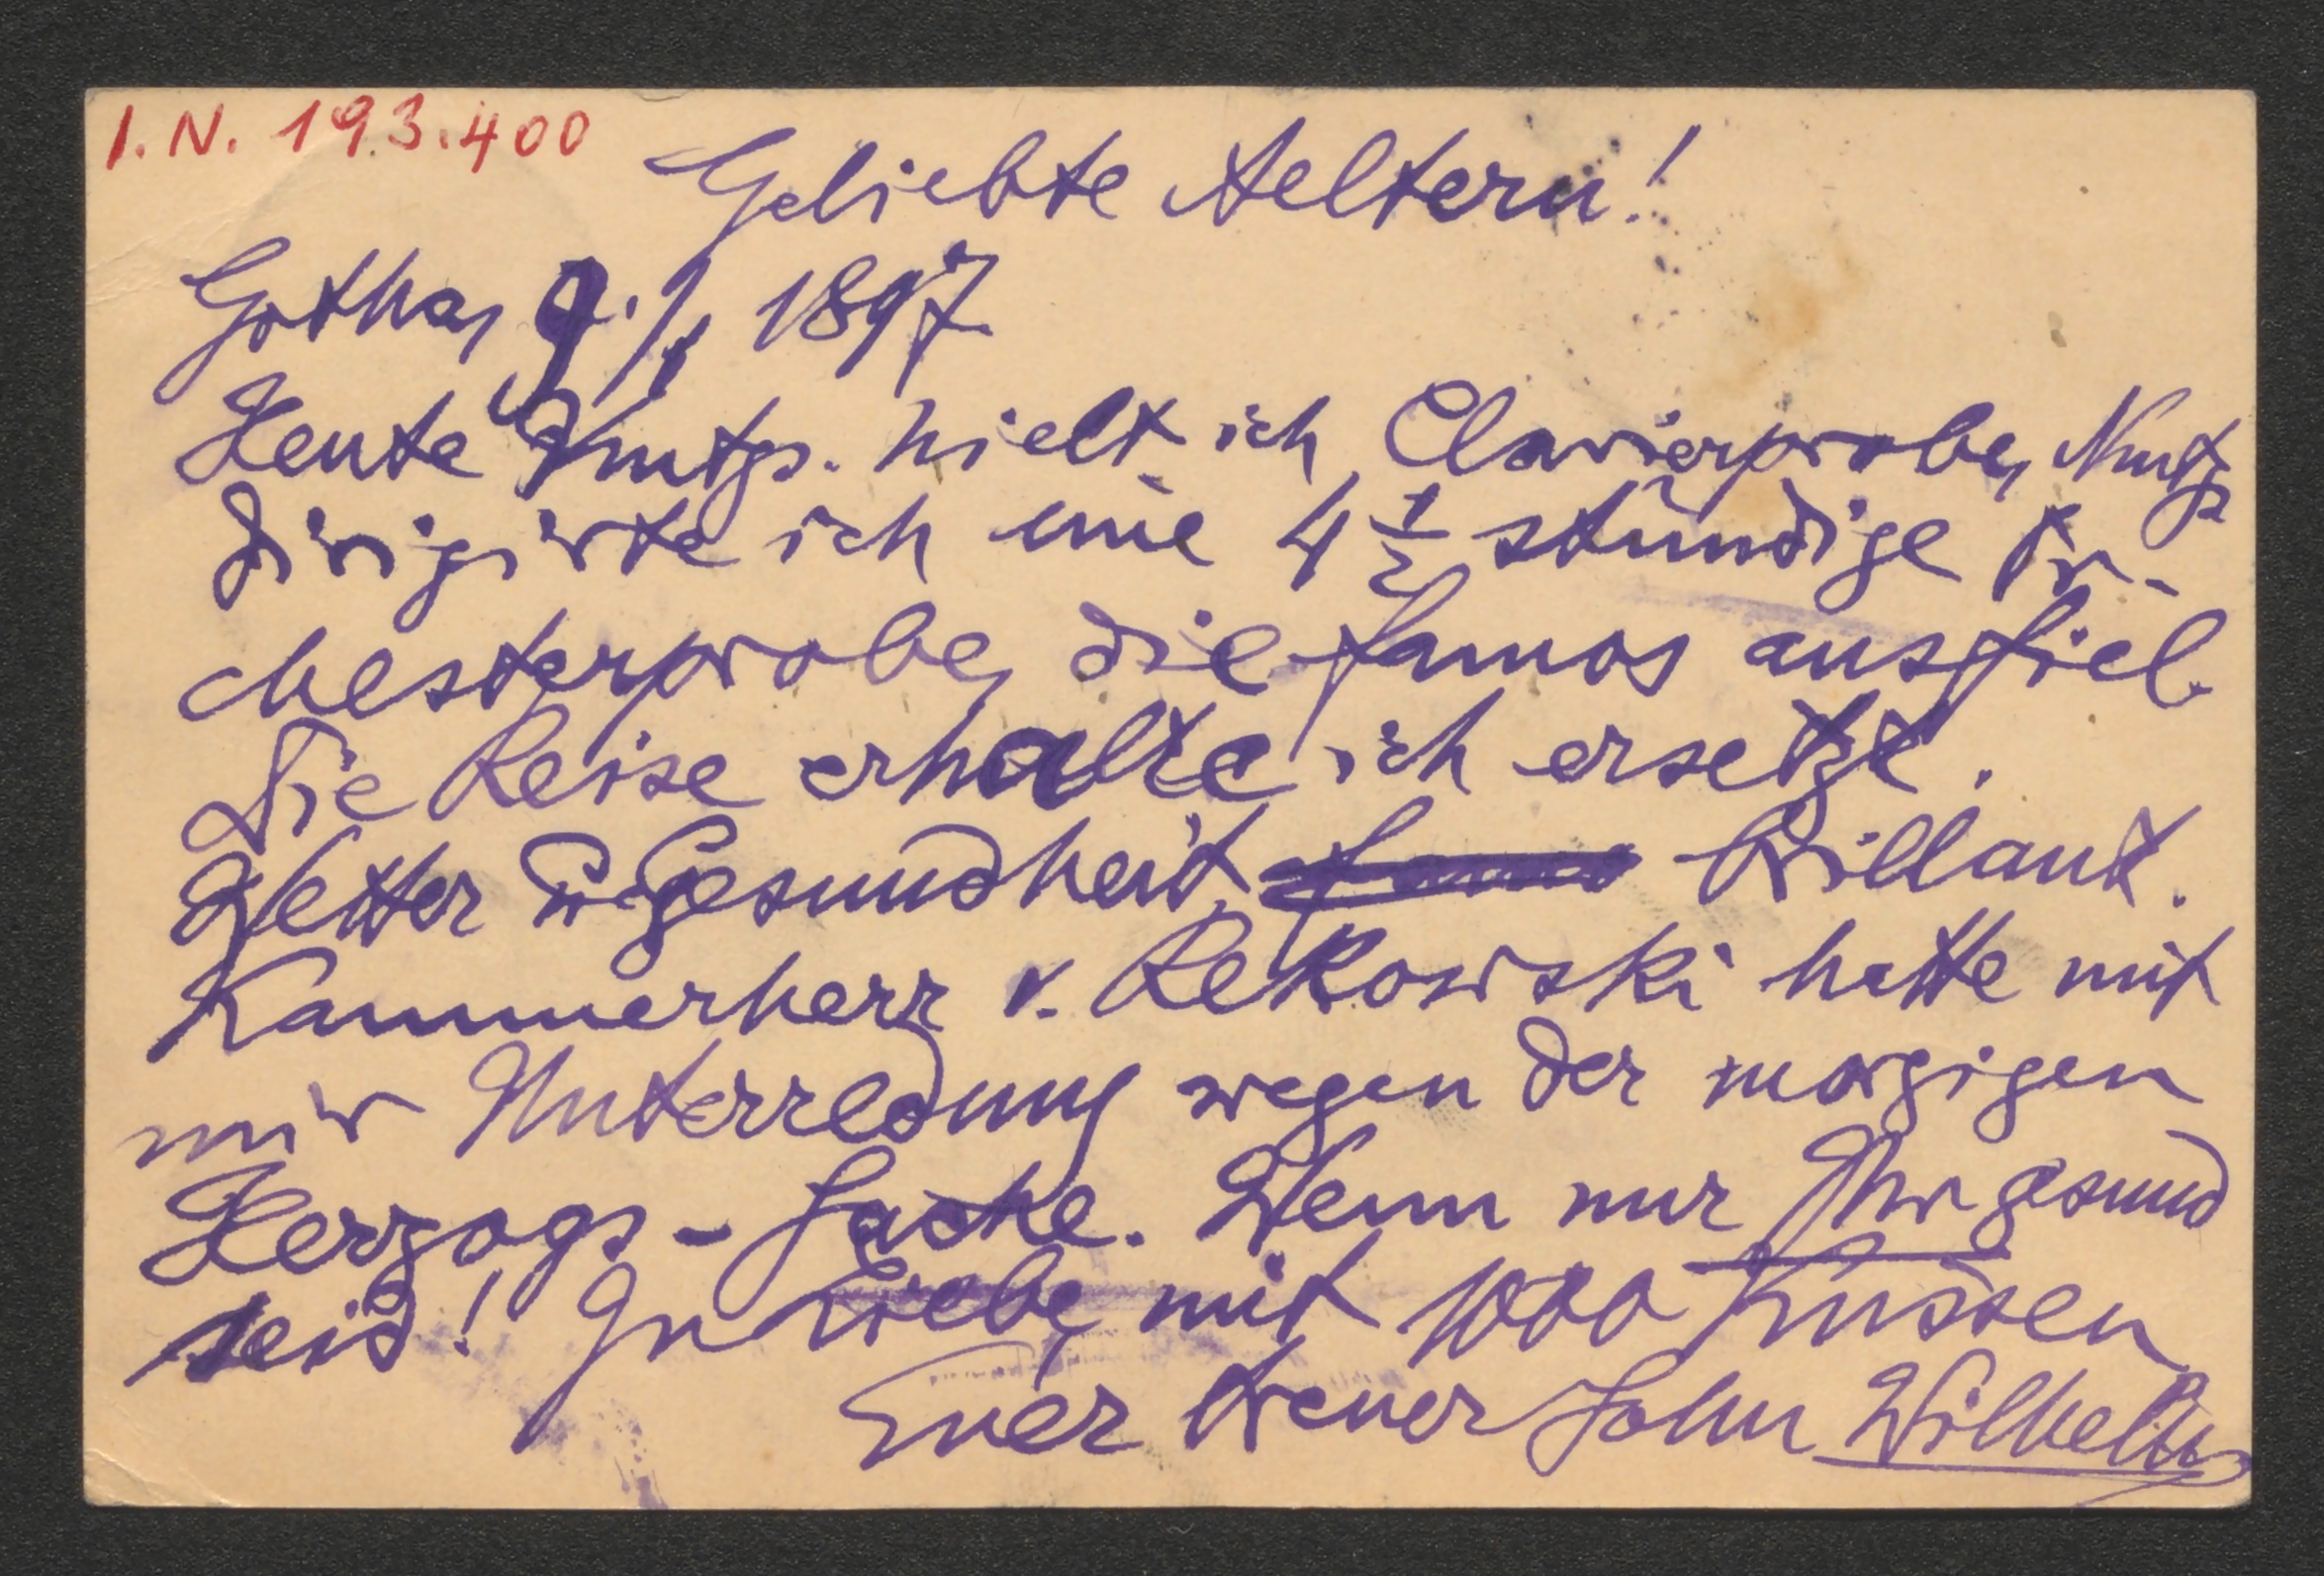 I. N. 193.400
Geliebte Aeltern!
Gotha, 9./1. 1897
Heute Vmtgs. hielt ich Clavierprobe, Nmtgs
dirigirte ich eine 4 1/2 stündige Or-
chesterprobe, die famos ausfiel.
Die Reise erhalte ich ersetzt.
Wetter u. Gesundheit brillant.
Kammerherr v. Rekowski hatte mit
mir Unterredung wegen der morgigen
Herzogs-Sache. Wenn nur Ihr gesund
seid! In Liebe, mit 1000 Küssen
Euer treuer Sohn Wilhelm